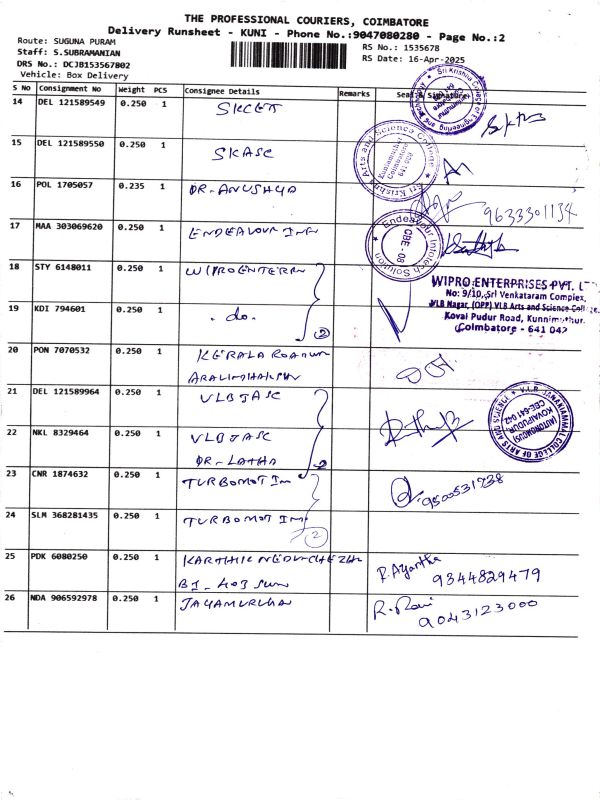 THE PROFESSIONAL COURIERS, COIMBATORE
Delivery Runsheet - KUNI - Phone No.:9047080280 - Page No.:2
Route: SUGUNA PURAM
Staff: S.SUBRAMANIAN
DRS No.: DCJB153567802
Vehicle: Box Delivery
RS No.: 1535678
RS Date: 16-Apr-2025
S No Consignment No Weight PCS Consignee Details Remarks Seal & Signature
14 DEL 121589549 0.250 1 SKCET
Sri Krishna College of Engineering and Technology
15 DEL 121589550 0.250 1 SKASC
Sri Krishna Arts and Science College
Coimbatore
641 008
16 POL 1705057 0.235 1 DR-ANUSHYA 9633301134
17 MAA 303069620 0.250 1 ENDEAVOUR INF
Endeavour Infotech Solution
CBE. 08
18 STY 6148011 0.250 1 WIPRO ENTERPR
WIPRO ENTERPRISES PVT.
No: 9/10, Sri Venkataram Complex,
VLB Nagar, (OPP) VLB Arts and Science College
Kovai Pudur Road, Kunnimuthur.
Coimbatore - 641 042
19 KDI 794601 0.250 1 - do - 2
20 PON 7070532 0.250 1 KERALA
21 DEL 121589964 0.250 1 VLBJASC
V.L.B. JANAKIAMMAL COLLEGE OF ARTS AND SCIENCE
(AUTONOMOUS)
KOVAIPUDUR,
CBE-641 042
22 NKL 8329464 0.250 1 VLBJASC
DR-LATHA 2
23 CNR 1874632 0.250 1 TURBOMOT Im 9500531738
24 SLM 368281435 0.250 1 TURBOMOT Im
2
25 PDK 6080250 0.250 1 KARTHIK NEDUNCHEZH P. Ayantha
BI-403 9344829479
26 NDA 906592978 0.250 1 JAYAMURUGAN R. Ravi
9043123000